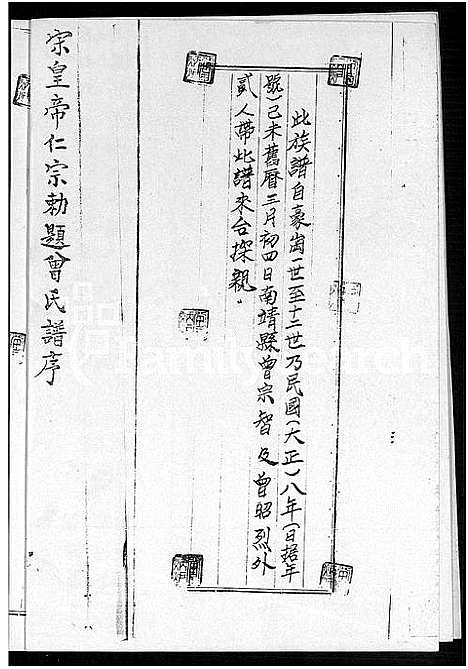 此族譜自豪崗一世至十二世乃民國(大正)八年(日据年
號)己未舊曆三月初四日南靖縣曾宗智及曾昭烈外
貳人帶此譜來台探親．
宗皇帝仁宗勅題曾氏譜序